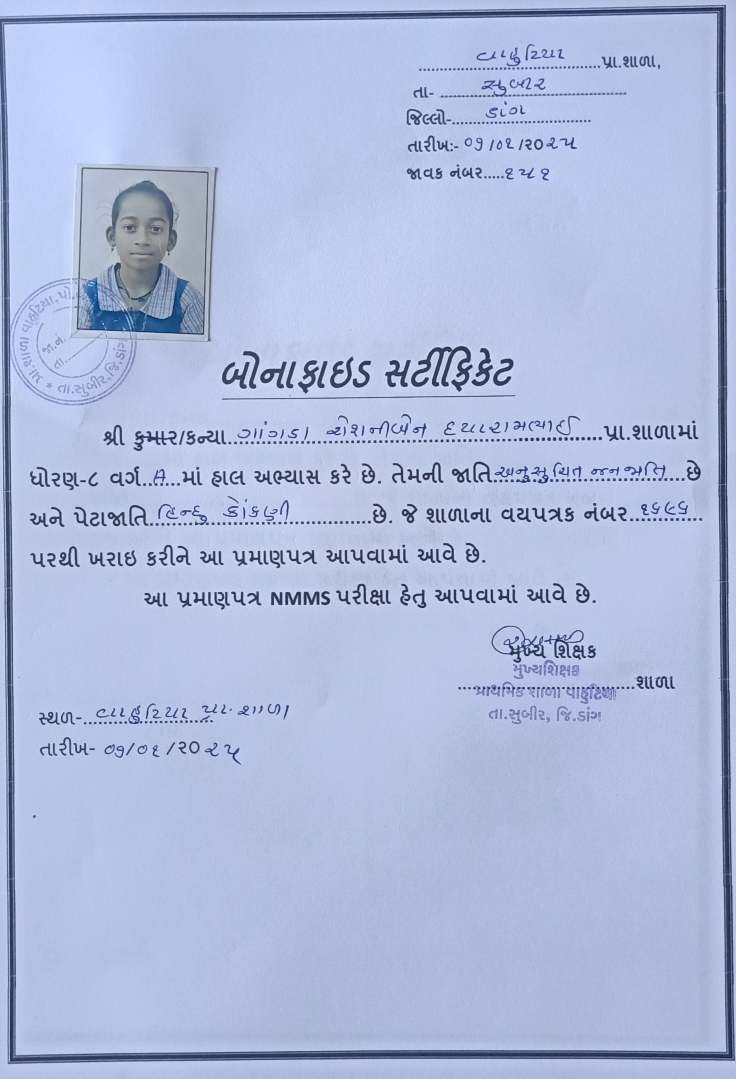 વાહુટિયા પ્રા.શાળા,
તા- સુબીર
જિલ્લો- ડાંગ
તારીખ:- ૦૧/૦૧/૨૦૨૫
જાવક નંબર.....૬૫૧
બોનાફાઇડ સર્ટીફિકેટ
શ્રી કુમાર/કન્યા..ગાંગડા રોશનીબેન દયારામભાઈ......પ્રા.શાળામાં
ધોરણ-૮ વર્ગ..A...માં હાલ અભ્યાસ કરે છે. તેમની જાતિ અનુસુચિત જનજાતિ...છે
અને પેટાજાતિ.હિન્દુ કોંકણી..........છે. જે શાળાના વયપત્રક નંબર..૧૬૯૬...
પરથી ખરાઇ કરીને આ પ્રમાણપત્ર આપવામાં આવે છે.
આ પ્રમાણપત્ર NMMS પરીક્ષા હેતુ આપવામાં આવે છે.
મુખ્ય શિક્ષક
મુખ્યશિક્ષક
પ્રાથમિક શાળા વાહુટિયા.....શાળા
તા.સુબીર, જિ.ડાંગ
સ્થળ-..વાહુટિયા પ્રા. શાળા
તારીખ- ૦૧/૦૧/૨૦૨૫